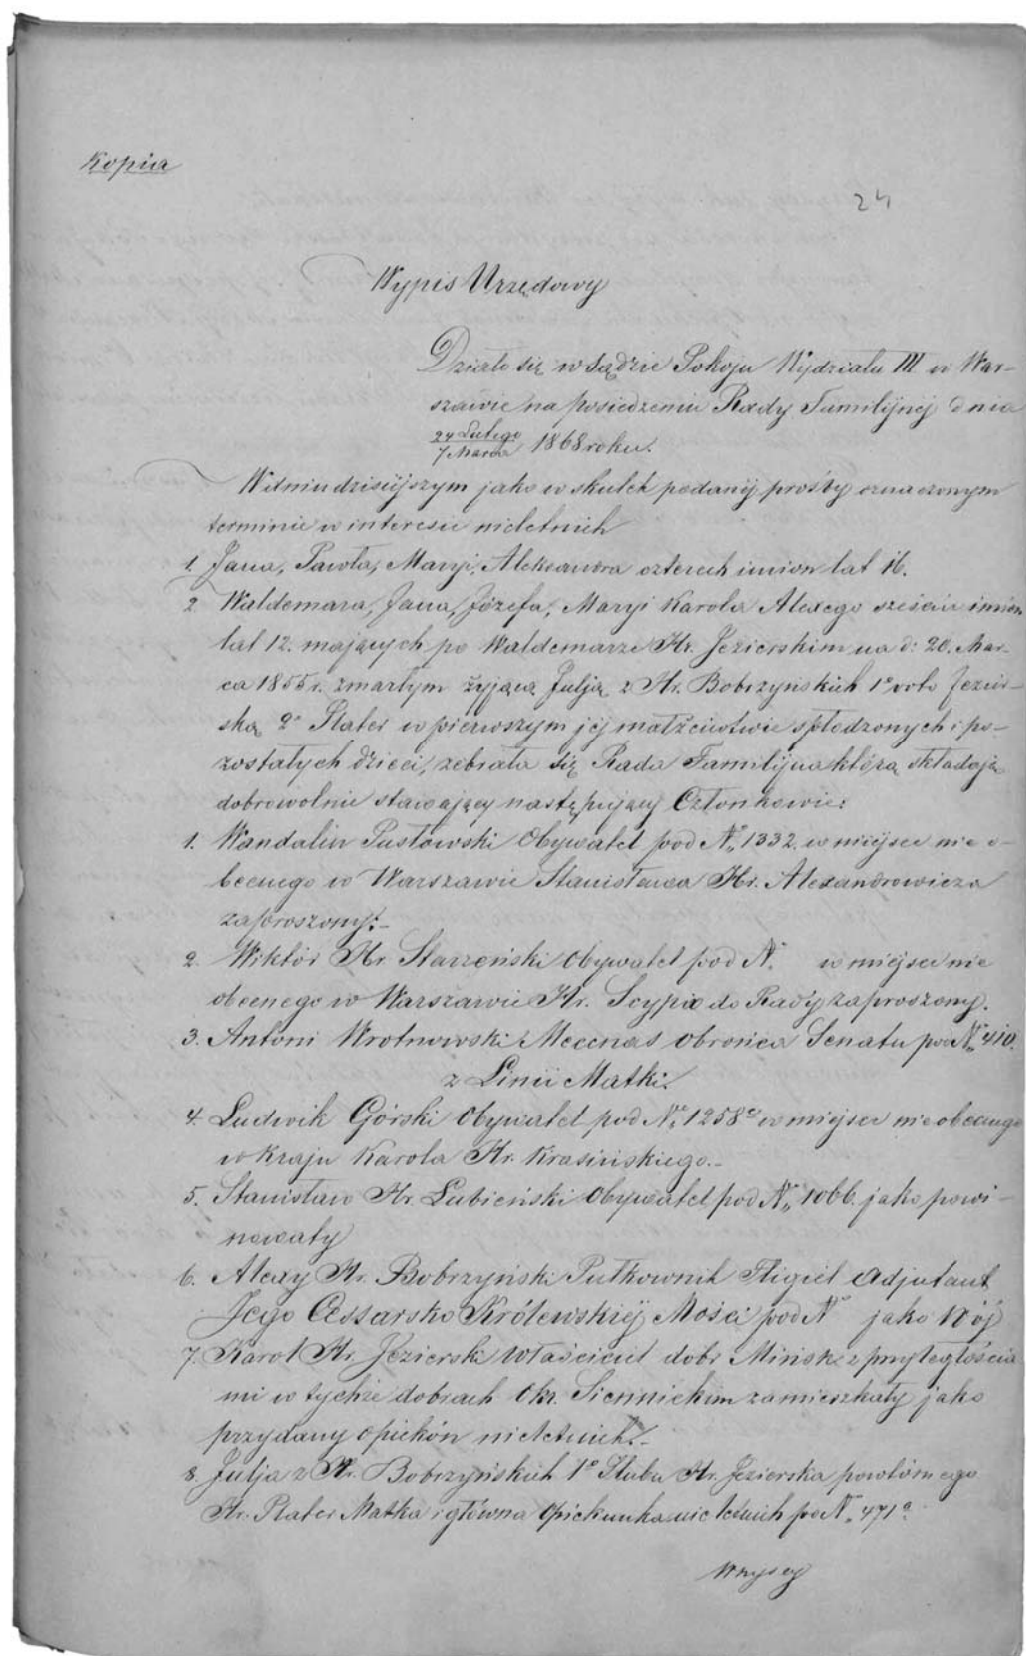 Kopia
24
Wypis Urzędowy
Działo się w Sądzie Pokoju Wydziału III w War-
szawie na posiedzeniu Rady Familijnej dnia
24 Lutego
7 Marca 1868 roku.
W dniu dzisiejszym jako w skutek podanéj prośby oznaczonym
terminie w interesie nieletnich
1. Jana, Pawła, Maryi, Aleksandra czterech imion lat 16.
2. Waldemara, Jana, Józefa, Maryi Karola Alexego sześciu imion
lat 12. mających po Waldemarze Hr. Jezierskim na d: 20. Mar-
ca 1855 r. zmarłym żyjącą Julją z Hr. Bobrzyńskich 1o voto Jezier-
ską 2o Plater w pierwszym jéj małżeństwie spłodzonych i po-
zostałych dzieci, zebrała się Rada Familijna którą składają
dobrowolnie stawający następujący Członkowie:
1. Wandalin Pusłowski Obywatel pod No 1332. w miejsce nie o-
becnego w Warszawie Stanisława Hr. Alexandrowicza
zaproszony.-
2. Wiktór Hr. Starzeński Obywatel pod N. w miejsce nie
obecnego w Warszawie Hr. Scypio do Rady zaproszony.
3. Antoni Wrotnowski Mecenas Obrońca Senatu pod No 410.
z Linii Matki.
4. Ludwik Górski Obywatel pod No 1258c w miejsce nieobecnego
w Kraju Karola Hr. Krasińskiego.-
5. Stanisław Hr. Łubieński Obywatel pod No 1066. jako powi-
nowaty
6. Alexy Hr. Bobrzyński Pułkownik Fligiel Adjutant
Jego Cessarsko Królewskiéj Mości pod No jako Wój
7. Karol Hr. Jezierski Właściciel dobr Mińsk z przyległościa
mi w tychże dobrach Okr. Siennickim zamieszkały jako
przydany opiekón nieletnich.-
8. Julja z Hr. Bobrzyńskich 1o Ślubu Hr. Jezierska powtórnego
Hr. Plater Matka i główna Opiekunka nieletnich pod No 471a
Wszyscy